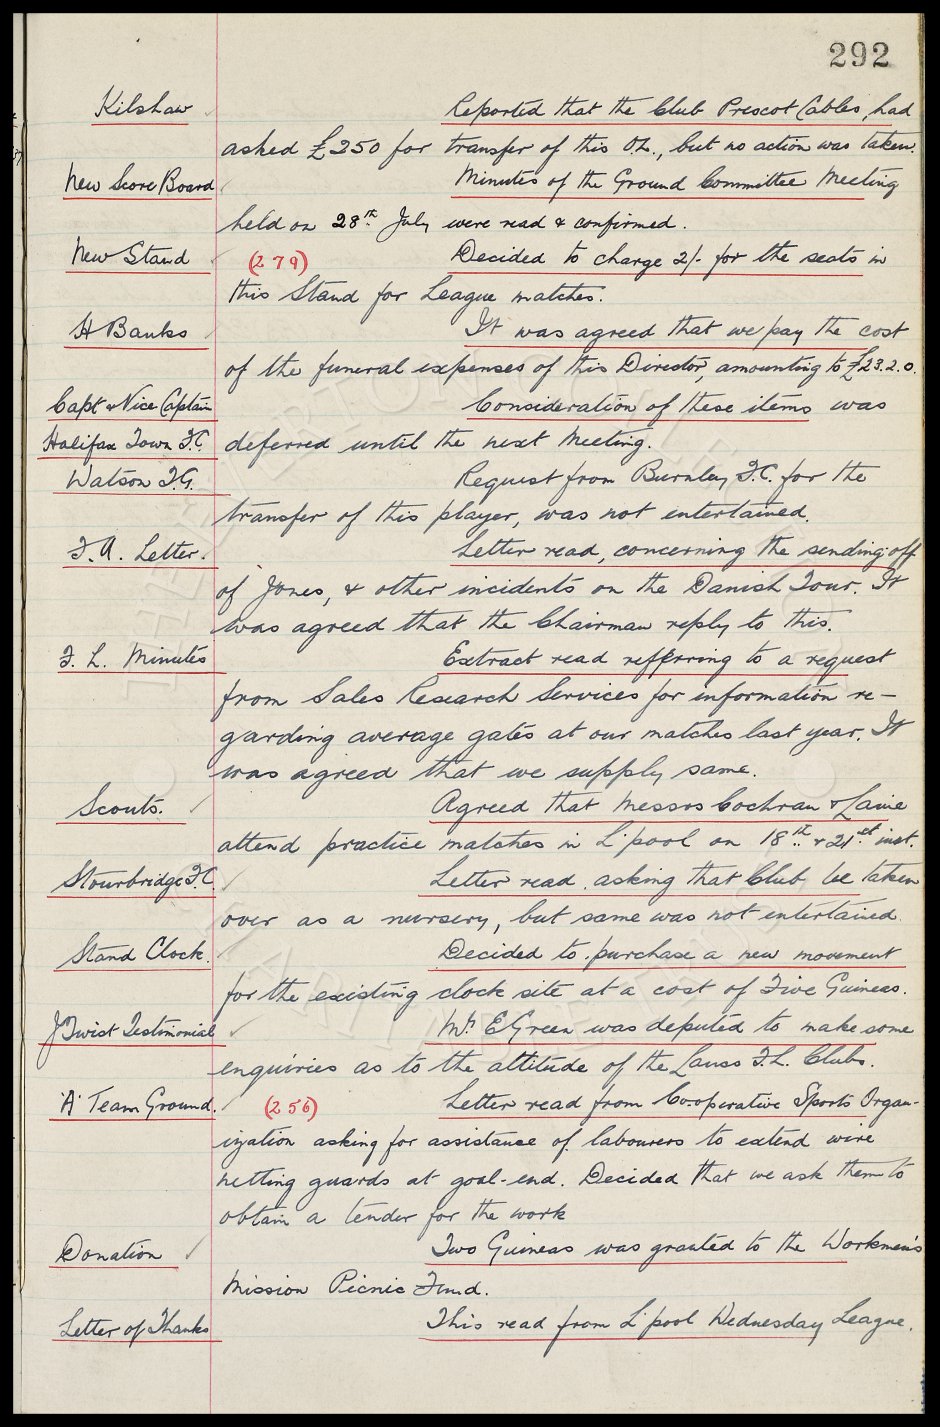 292
Kilshaw Reported that the Club Prescot Cables, had
asked £250 for transfer of this O.L., but no action was taken.
New Score Board Minutes of the Ground Committee Meeting
held on 28th July were read & confirmed.
New Stand (279) Decided to charge 2/- for the seats in
this Stand for League matches.
H Banks It was agreed that we pay the cost
of the funeral expenses of this Director, amounting to £23.2.0.
Capt & Vice Captain Consideration of these items was
Halifax Town F.C. deferred until the next Meeting.
Watson T.G. Request from Burnley F.C. for the
transfer of this player, was not entertained.
F.A. Letter. Letter read, concerning the sending off
of Jones, & other incidents on the Danish Tour. It
was agreed that the Chairman reply to this.
F. L. Minutes Extract read refferring to a request
from Sales Research Services for information re-
garding average gates at our matches last year. It
was agreed that we supply same.
Scouts. Agreed that Messrs Cochran &
attend practice matches in L'pool on 18th & 21st inst.
Stourbridge F.C. Letter read asking that Club be taken
over as a nursery, but same was not entertained.
Stand Clock. Decided to purchase a new movement
for the existing clock site at a cost of Five Guineas.
J Twist Testimonial Mr. E Green was deputed to make some
enquiries as to the attitude of the Lancs F.L. Clubs.
'A' Team Ground. (256) Letter read from Co.operative Sports Organ-
ization asking for assistance of labourers to extend wire
netting guards at goal-end. Decided that we ask them to
obtain a tender for the work
Donation Two Guineas was granted to the Workmen's
Mission Picnic Fund.
Letter of Thanks This read from L'pool Wednesday League.